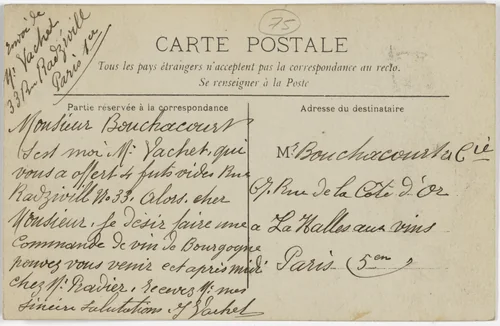 Envoi de
Mr Vachet
33 Rue Radziwill
Paris 1er
75
CARTE POSTALE
Tous les pays étrangers n'acceptent pas la correspondance au recto.
Se renseigner à la Poste
Partie réservée à la correspondance
Monsieur Bouchacourt
sest moi Mr Vachet, qui
vous a offert 4 futs vides Rue
Radziwill No 33. Alors, cher
Monsieur, je désir faire une
Commande de vin de Bourgogne
pouvez vous venir cet après midi
chez Mr Radier, recevez Mr mes
sincère salutations. J Vachet
Adresse du destinataire
Mr Bouchacourt & Cie
Rue de la Côte d'Or
a La Halles aux vins
Paris 5em